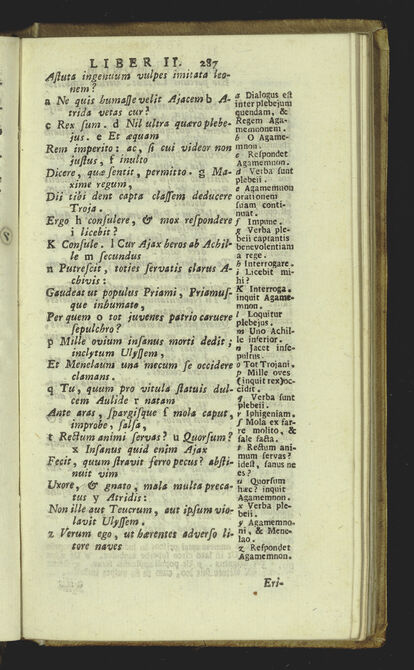 LIBER II. 287
Astuta ingenuum vulpes imitata leo-
nem?
a Ne quis humasse velit Ajacem b A-
trida vetas cur?
c Rex sum. d Nil ultra quæro plebe-
jus. e Et æquam
Rem imperito: ac, si cui videor non
justus, f inulto
Dicere, quæ sentit, permitto. g Ma-
xime regum,
Dii tibi dent capta classem deducere
Troja.
Ergo h consulere, & mox respondere
i licebit?
K Consule. l Cur Ajax heros ab Achil-
le m secundus
n Putrescit, toties servatis clarus A-
chivis:
Gaudeat ut populus Priami, Priamus-
que inhumato,
Per quem o tot juvenes patrio caruere
sepulchro?
p Mille ovium insanus morti dedit;
inclytum Ulyssem,
Et Menelaum una mecum se occidere
clamans.
q Tu, quum pro vitula statuis dul-
cem Aulide r natam
Ante aras, spargisque s mola caput,
improbe, salsa,
t Rectum animi servas? u Quorsum?
x Insanus quid enim Ajax
Fecit, quum stravit ferro pecus? absti-
nuit vim
Uxore, & gnato, mala multa preca-
tus y Atridis:
Non ille aut Teucrum, aut ipsum vio-
lavit Ulyssem.
z Verum ego, ut hærentes adverso li-
tore naves
a Dialogus est
inter plebejum
quendam, &
Regem Aga-
memnonem.
b O Agame-
mnon.
c Respondet
Agamemnon.
d Verba sunt
plebeii.
e Agamemnon
orationem
suam conti-
nuat.
f Impune.
g Verba ple-
beii captantis
benevolentiam
a rege.
h Interrogare.
i Licebit mi-
hi?
K Interroga.
inquit Agame-
mnon.
l Loquitur
plebejus.
m Uno Achil-
le inferior.
n Jacet inse-
pultus.
o Tot Trojani.
p Mille oves
(inquit rex) oc-
cidit.
q Verba sunt
plebeii.
r Iphigeniam.
s Mola ex far-
re molito, &
sale facta.
t Rectum ani-
mum servas?
idest, sanus ne
es?
u Quorsum
hæc? inquit
Agamemnon.
x Verba ple-
beii.
y Agamemno-
ni, & Mene-
lao.
z Respondet
Agamemnon.
Eri-